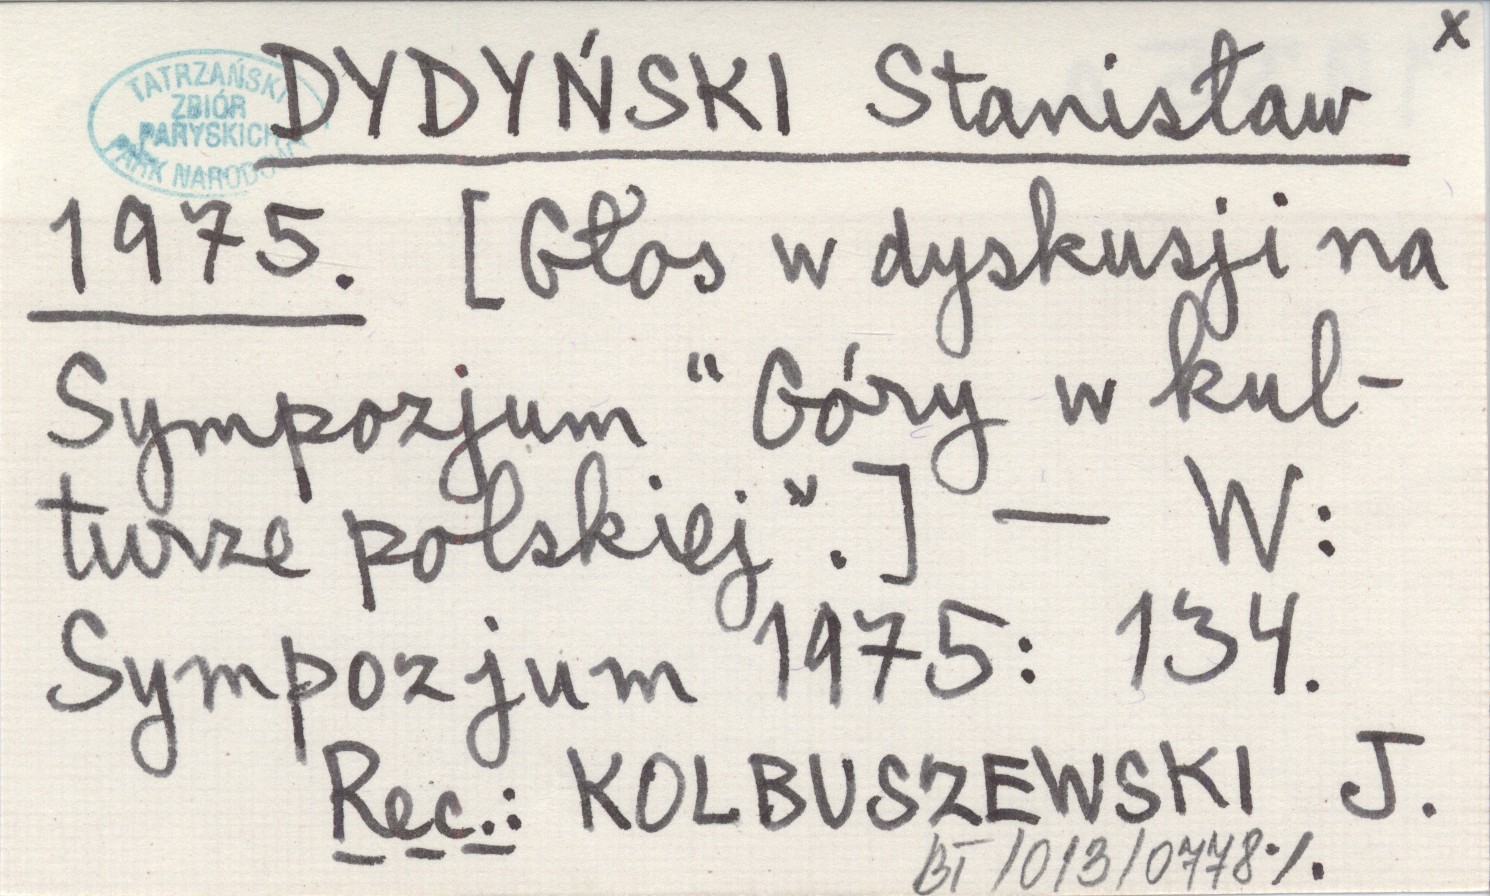 x
DYDYŃSKI Stanisław
TATRZAŃSKI
ZBIÓR
PARYSKICH
PARK NARODOWY
1975. [Głos w dyskusji na
Sympozjum "Góry w kul-
turze polskiej".] — W:
Sympozjum 1975: 134.
Rec.: KOLBUSZEWSKI J.
BT/013/0778·/.